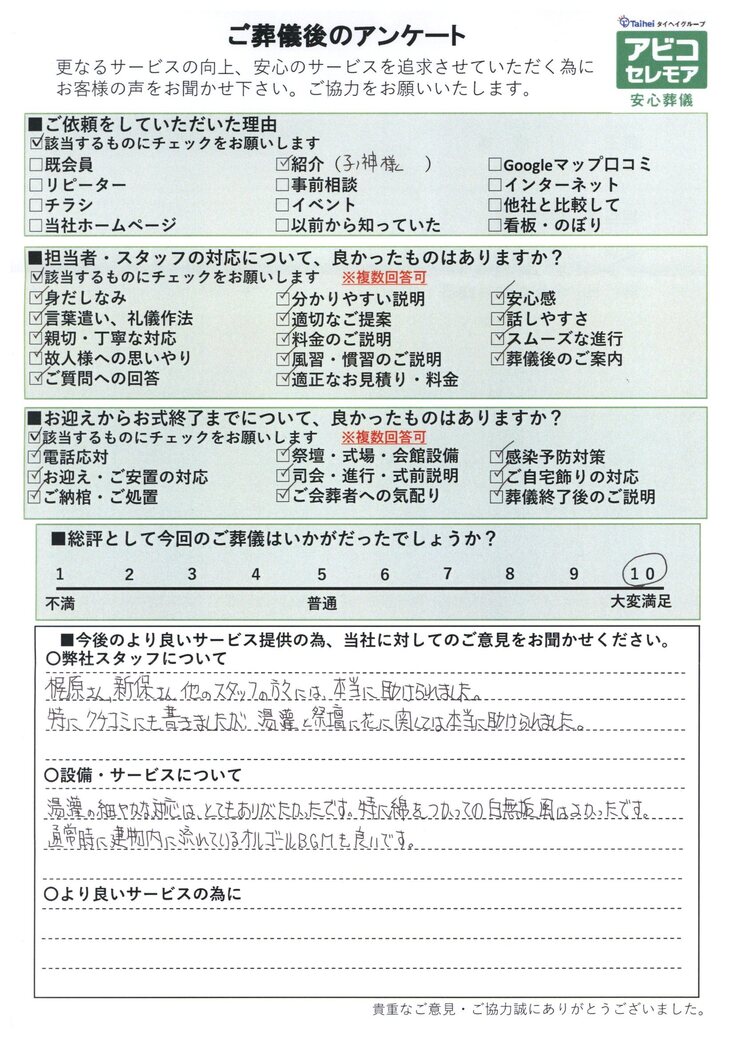 ご葬儀後のアンケート
Taihei タイヘイグループ
アビコ
セレモア
安心葬儀
更なるサービスの向上、安心のサービスを追求させていただく為に
お客様の声をお聞かせ下さい。ご協力をお願いいたします。
■ご依頼をしていただいた理由
☑該当するものにチェックをお願いします
□既会員 ☑紹介(子神様 ) □Googleマップ口コミ
□リピーター □事前相談 □インターネット
□チラシ □イベント □他社と比較して
□当社ホームページ □以前から知っていた □看板・のぼり
■担当者・スタッフの対応について、良かったものはありますか?
☑該当するものにチェックをお願いします ※複数回答可
☑身だしなみ ☑分かりやすい説明 ☑安心感
☑言葉遣い、礼儀作法 ☑適切なご提案 ☑話しやすさ
☑親切・丁寧な対応 ☑料金のご説明 ☑スムーズな進行
☑故人様への思いやり ☑風習・慣習のご説明 ☑葬儀後のご案内
☑ご質問への回答 ☑適正なお見積り・料金
■お迎えからお式終了までについて、良かったものはありますか?
☑該当するものにチェックをお願いします ※複数回答可
☑電話応対 ☑祭壇・式場・会館設備 ☑感染予防対策
☑お迎え・ご安置の対応 ☑司会・進行・式前説明 ☑ご自宅飾りの対応
☑ご納棺・ご処置 ☑ご会葬者への気配り ☑葬儀終了後のご説明
■総評として今回のご葬儀はいかがだったでしょうか?
1 2 3 4 5 6 7 8 9 10
不満 普通 大変満足
■今後のより良いサービス提供の為、当社に対してのご意見をお聞かせください。
〇弊社スタッフについて
梶原さん、新保さん、他のスタッフの方々には、本当に助けられました。
特にクチコミにも書きましたが、湯灌と祭壇に花に関しては本当に助けられました。
〇設備・サービスについて
湯灌の細やかな対応は、とてもありがたかったです。特に綿をつかっての白無垢風はよかったです。
通常時に建物内に流れているオルゴールBGMも良いです。
〇より良いサービスの為に
貴重なご意見・ご協力誠にありがとうございました。